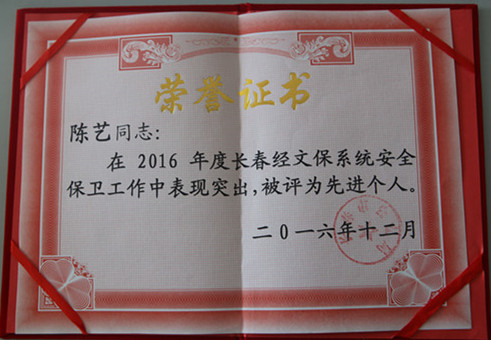 荣誉证书
陈艺同志:
在 2016 年度长春经文保系统安全
保卫工作中表现突出,被评为先进个人。
二〇一六年十二月